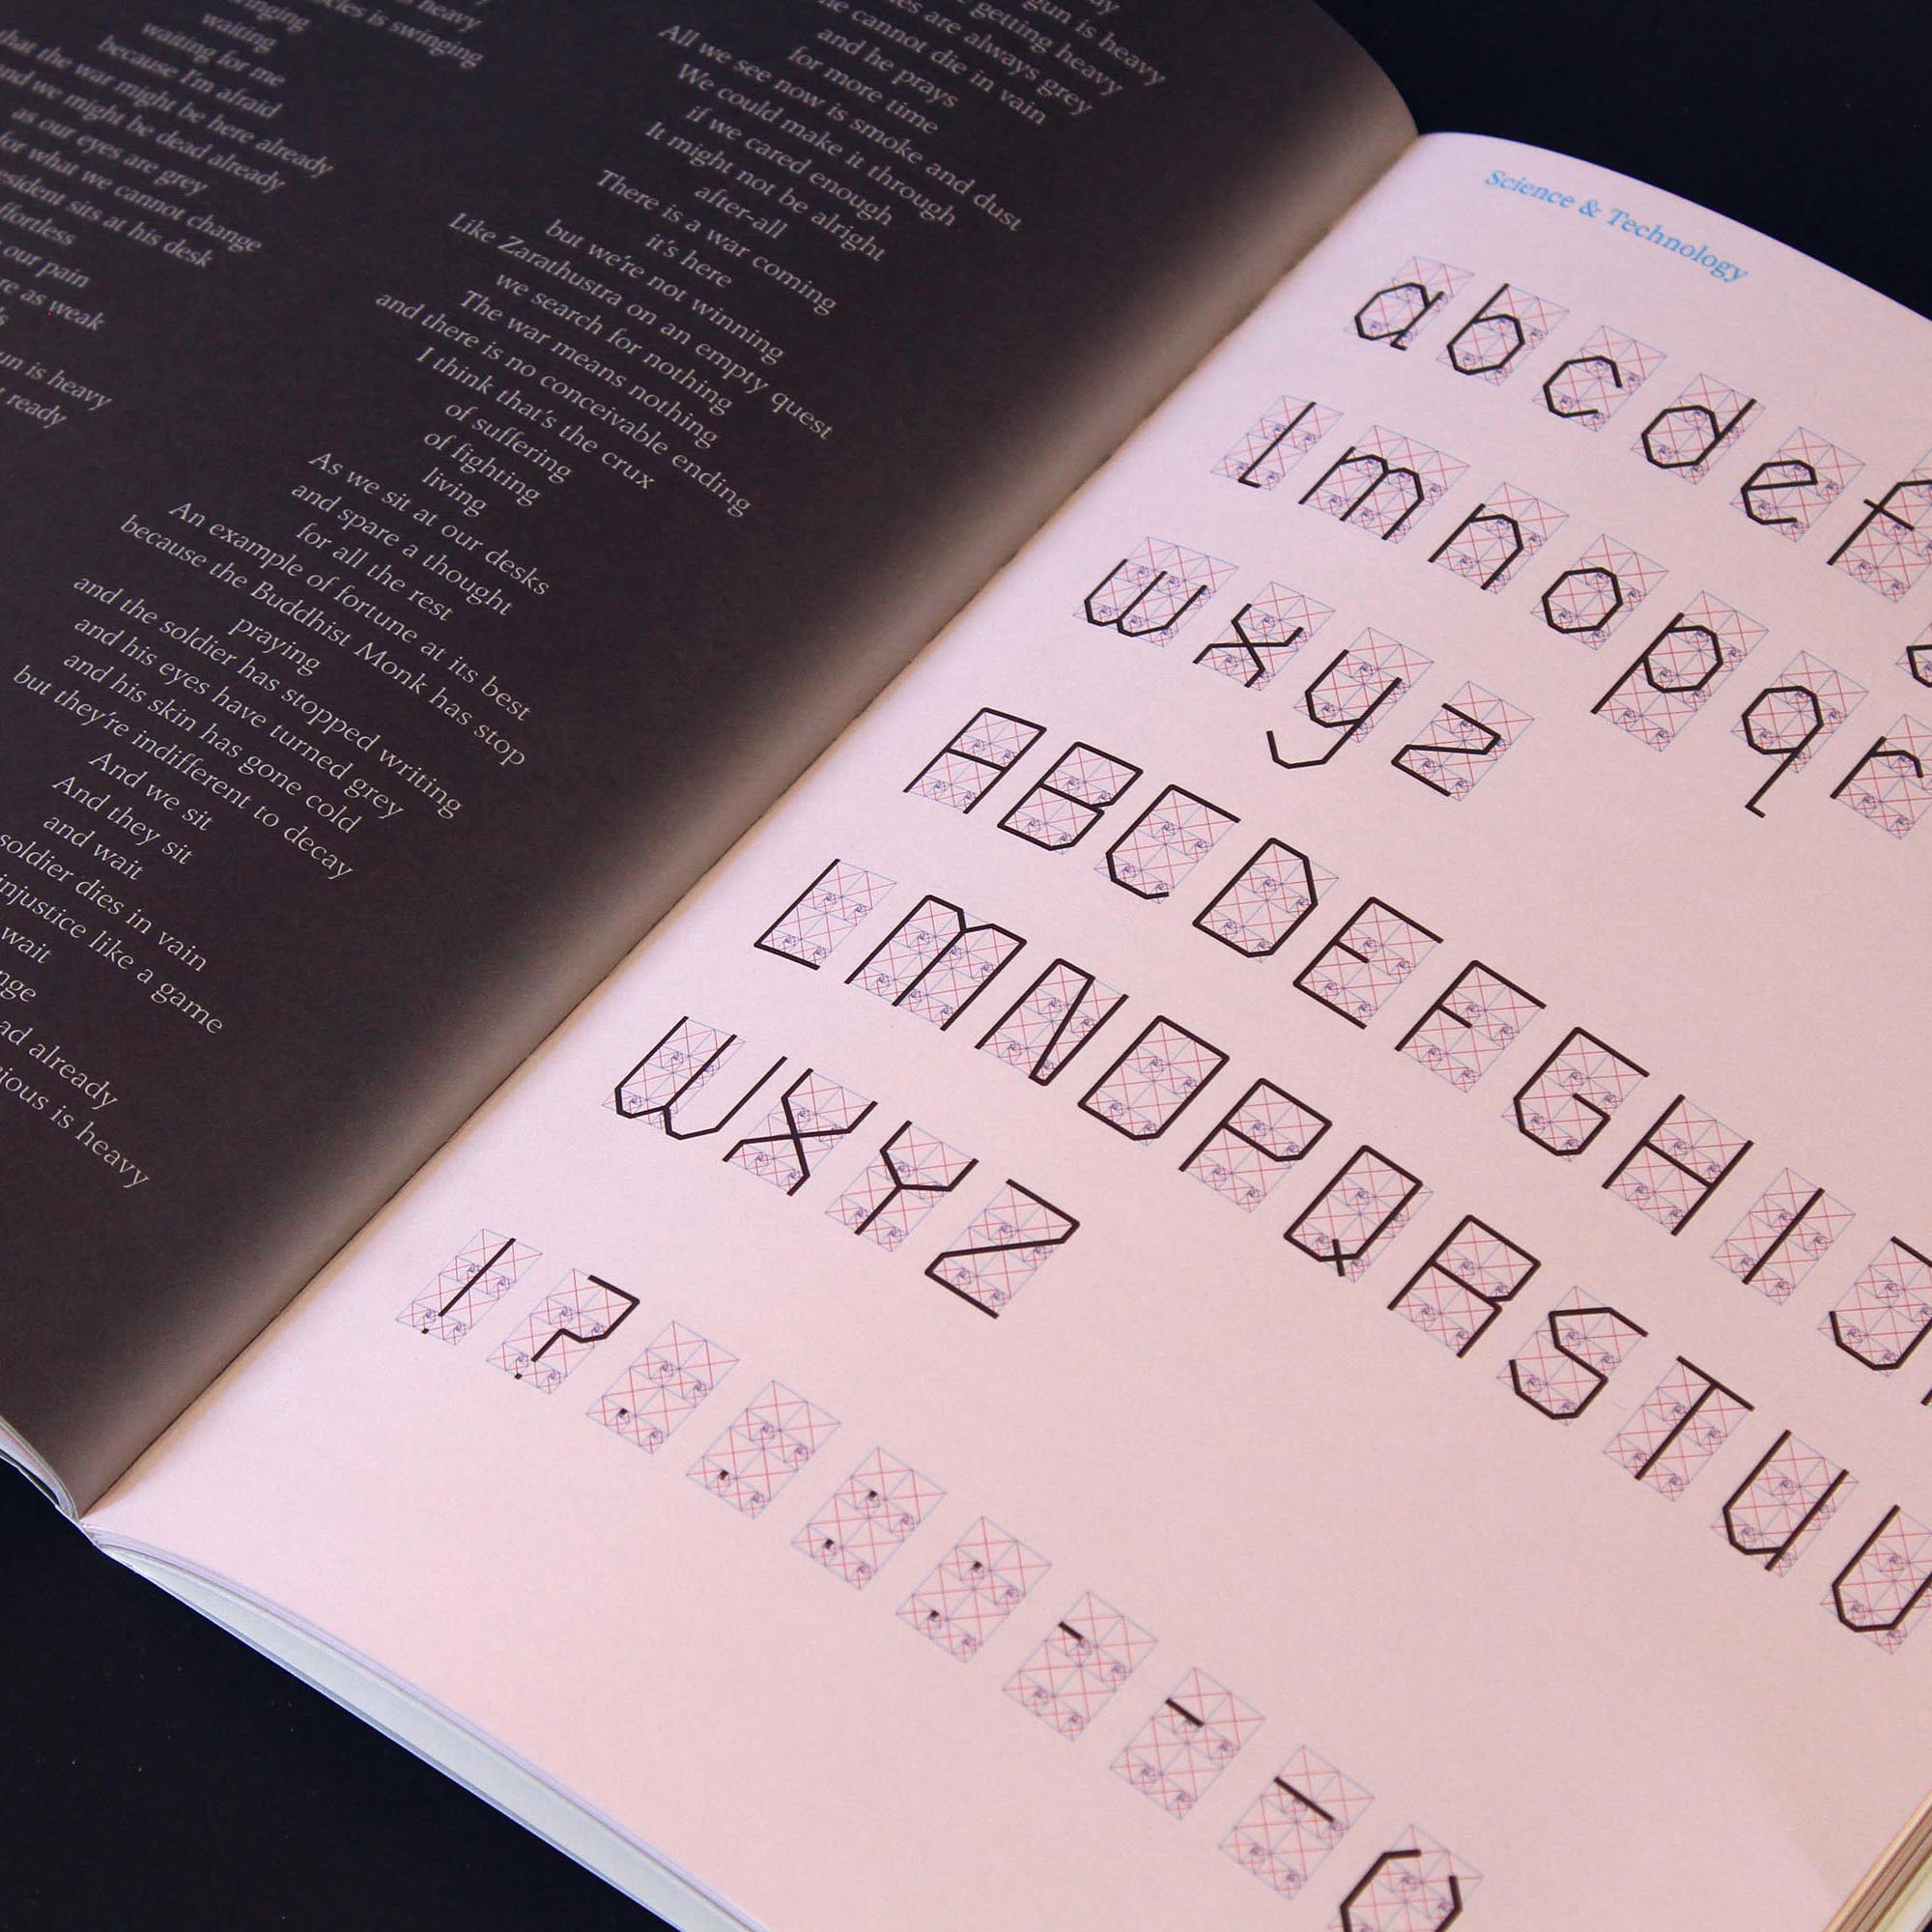 swinging
waiting
waiting for me
because I'm afraid
that the war might be here already
and we might be dead already
as our eyes are grey
for what we cannot change
sits at his desk
our pain
as weak
is heavy
ready
heavy
is swinging
gun is heavy
getting heavy
are always grey
cannot die in vain
and he prays
for more time
All we see now is smoke and dust
We could make it through
if we cared enough
It might not be alright
after-all
There is a war coming
it's here
but we're not winning
Like Zarathustra on an empty quest
we search for nothing
The war means nothing
and there is no conceivable ending
I think that's the crux
of suffering
of fighting
living
As we sit at our desks
and spare a thought
for all the rest
An example of fortune at its best
because the Buddhist Monk has stop
praying
and the soldier has stopped writing
and his eyes have turned grey
and his skin has gone cold
but they're indifferent to decay
And we sit
And they sit
and wait
soldier dies in vain
injustice like a game
wait
already
is heavy
Science & Technology
a b c d e f
l m n o p q r
w x y z
A B C D E F G H I J
L M N O P Q R S T U V
W X Y Z
! ? . , : ; - – —